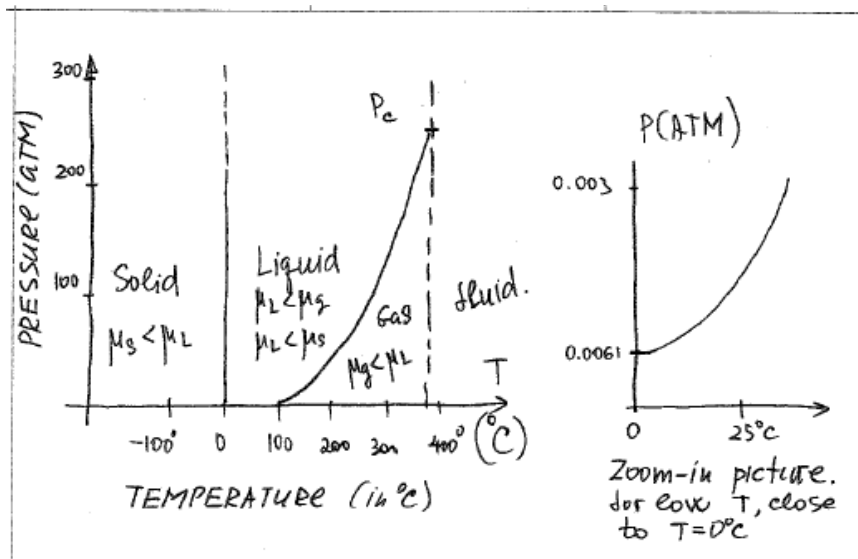 PRESSURE (ATM)
300
200
100
Solid
μs < μL
Liquid
μL < μg
μL < μs
Gas
μg < μL
Pc
fluid.
T
-100°
0
100
200
300
400°
(°C)
TEMPERATURE (in °C)
P(ATM)
0.003
0.0061
0
25°C
Zoom-in picture.
for low T, close
to T=0°C